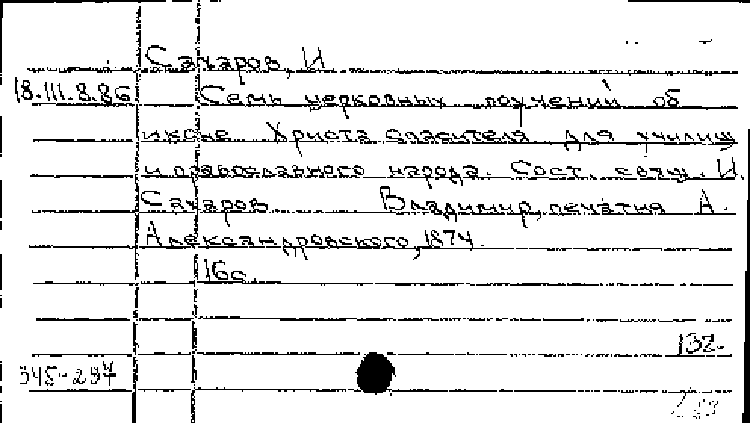 Сахаров, И
18.III.8.86 Семь церковных поучений об
иконе Христа спасителя для училищ
и православного народа. Сост. свящ. И.
Сахаров Владимир, печатня А.
Александровского, 1874.
16с.
132.
345-297